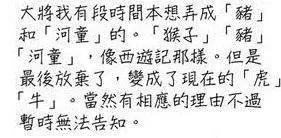 大將我有段時間本想弄成「豬」
和「河童」的。「猴子」「豬」
「河童」，像西遊記那樣。但是
最後放棄了，變成了現在的「虎」
「牛」。當然有相應的理由不過
暫時無法告知。